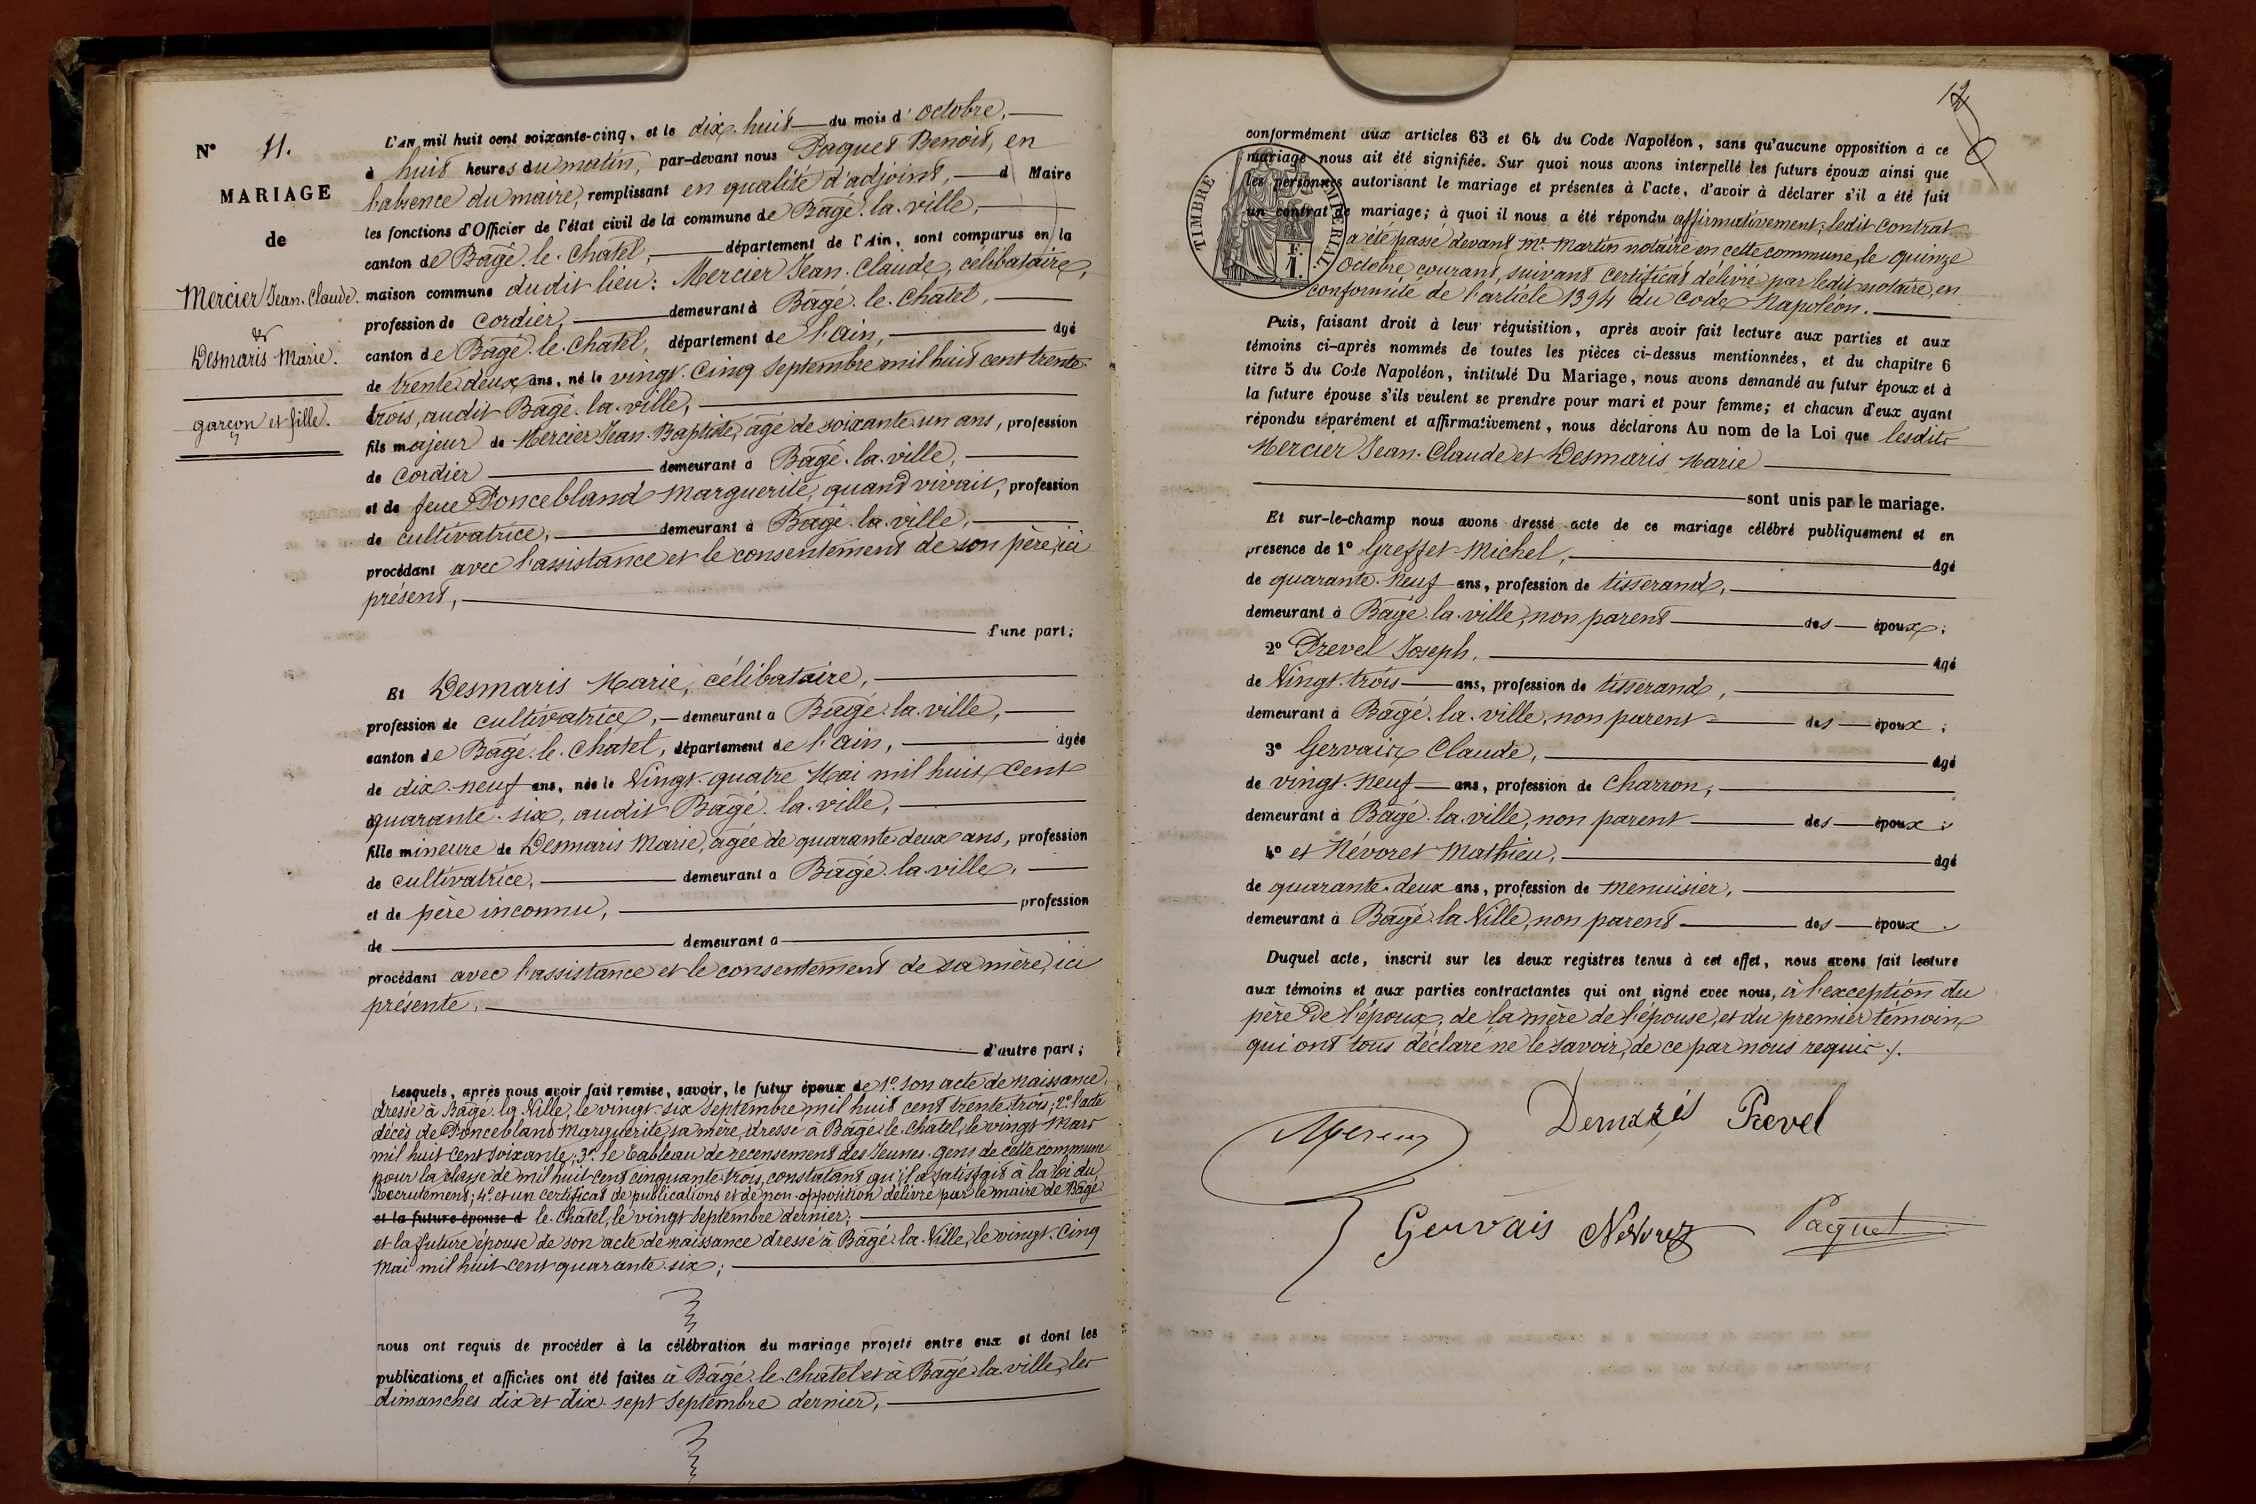 N° 11.
MARIAGE
de
Mercier Jean-Claude.
&
Desmaris Marie.
garçon et fille.
L'AN mil huit cent soixante-cinq, et le dix-huit du mois d'Octobre,
à huit heures du matin, par-devant nous Paquet Benoit, en
l'absence du maire, remplissant en qualité d'adjoint, d Maire
les fonctions d'Officier de l'état civil de la commune de Bagé-la-ville,
canton de Bagé-le-Chatel, département de l'Ain, sont comparus en la
maison commune dudit lieu: Mercier Jean-Claude, célibataire,
profession de cordier, demeurant à Bagé-le-Chatel,
canton de Bagé-le-Chatel, département de l'ain, âgé
de trente deux ans, né le vingt-cinq Septembre mil huit cent trente
trois, audit Bagé-la-ville,
fils majeur de Mercier Jean-Baptiste, âgé de soixante un ans, profession
de cordier demeurant à Bagé-la-ville,
et de feue Poncebland Marguerite, quand vivait, profession
de cultivatrice, demeurant à Bagé-la-ville,
procédant avec l'assistance et le consentement de son père, ici
présent,
d'une part;
Et Desmaris Marie, célibataire,
profession de cultivatrice, demeurant à Bagé-la-ville,
canton de Bagé-le-Chatel, département de l'ain, âgée
de dix-neuf ans, née le Vingt-quatre Mai mil huit cent
quarante-six, audit Bagé-la-ville,
fille mineure de Desmaris Marie, âgée de quarante deux ans, profession
de cultivatrice, demeurant à Bagé-la-ville,
et de père inconnu, profession
de demeurant à
procédant avec l'assistance et le consentement de sa mère, ici
présente,
d'autre part;
Lesquels, après nous avoir fait remise, savoir, le futur époux de 1° son acte de naissance,
dressé à Bagé-la-Ville, le vingt-six Septembre mil huit cent trente trois; 2° l'acte
décès de Poncebland Marguerite, sa mère, dressé à Bagé-le-Chatel, le vingt Mars
mil huit cent soixante; 3° le Tableau de recensement des Jeunes-Gens de cette commune
pour la classe de mil huit cent cinquante trois, constatant qu'il a satisfait à la loi du
Recrutement; 4° et un certificat de publications et de non-opposition délivré par le maire de Bagé-
et la future épouse d le-Chatel, le vingt Septembre dernier;
et la future épouse de son acte de naissance dressé à Bagé-la-Ville, le vingt-cinq
Mai mil huit cent quarante-six;
nous ont requis de procéder à la célébration du mariage projeté entre eux et dont les
publications et affiches ont été faites à Bagé-le-Chatel et à Bagé-la-ville, les
dimanches dix et dix-sept Septembre dernier,
12
conformément aux articles 63 et 64 du Code Napoléon, sans qu'aucune opposition à ce
mariage nous ait été signifiée. Sur quoi nous avons interpellé les futurs époux ainsi que
les personnes autorisant le mariage et présentes à l'acte, d'avoir à déclarer s'il a été fait
un contrat de mariage; à quoi il nous a été répondu affirmativement; ledit contrat
a été passé devant Me Martin notaire en cette commune, le quinze
Octobre courant, suivant certificat délivré par ledit notaire, en
conformité de l'article 1394 du Code Napoléon.
TIMBRE IMPERIAL
F.
1.
Puis, faisant droit à leur réquisition, après avoir fait lecture aux parties et aux
témoins ci-après nommés de toutes les pièces ci-dessus mentionnées, et du chapitre 6
titre 5 du Code Napoléon, intitulé Du Mariage, nous avons demandé au futur époux et à
la future épouse s'ils veulent se prendre pour mari et pour femme; et chacun d'eux ayant
répondu séparément et affirmativement, nous déclarons Au nom de la Loi que lesdits
Mercier Jean-Claude et Desmaris Marie
sont unis par le mariage.
Et sur-le-champ nous avons dressé acte de ce mariage célébré publiquement et en
présence de 1° Greffet Michel, âgé
de quarante-neuf ans, profession de tisserand,
demeurant à Bagé-la-ville, non parent des époux;
2° Prevel Joseph, âgé
de Vingt-trois ans, profession de tisserand,
demeurant à Bagé-la-ville, non parent des époux;
3° Gervais Claude, âgé
de vingt-neuf ans, profession de charron,
demeurant à Bagé-la-ville, non parent des époux;
4° et Névoret Mathieu, âgé
de quarante-deux ans, profession de menuisier,
demeurant à Bagé-la-Ville, non parent des époux.
Duquel acte, inscrit sur les deux registres tenus à cet effet, nous avons fait lecture
aux témoins et aux parties contractantes qui ont signé avec nous, à l'exception du
père de l'époux, de la mère de l'épouse, et du premier témoin,
qui ont tous déclaré ne le savoir, de ce par nous requis.
Demarés Prevel
Gervais Nevoret Paquet